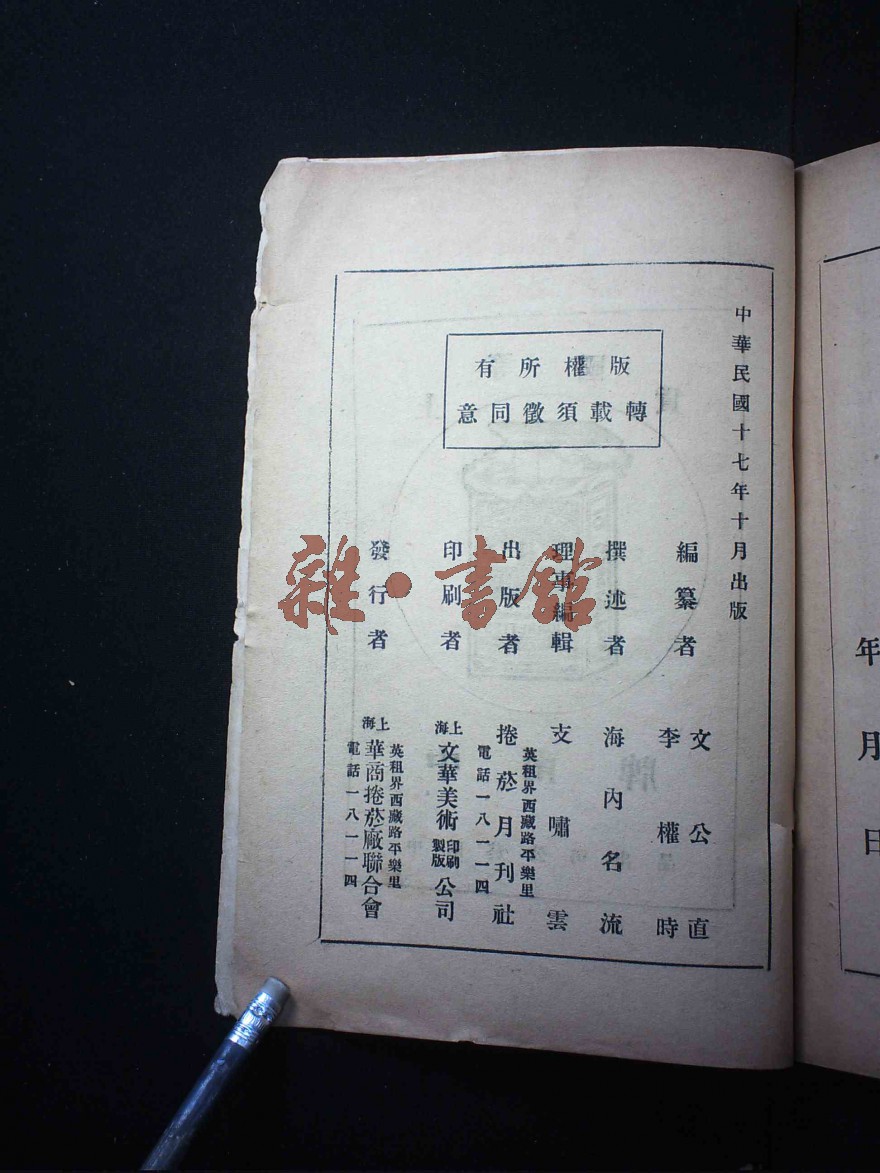 中華民國十七年十月出版
版權所有
轉載須徵同意
編纂者 文公直
李權時
撰述者 海內名流
理事編輯 支嘯雲
出版者 捲菸月刊社
英租界西藏路平樂里
電話一八一一四
印刷者 上海文華美術印刷製版公司
發行者 上海華商捲菸廠聯合會
英租界西藏路平樂里
電話一八一一四
雜·書館
年 月 日